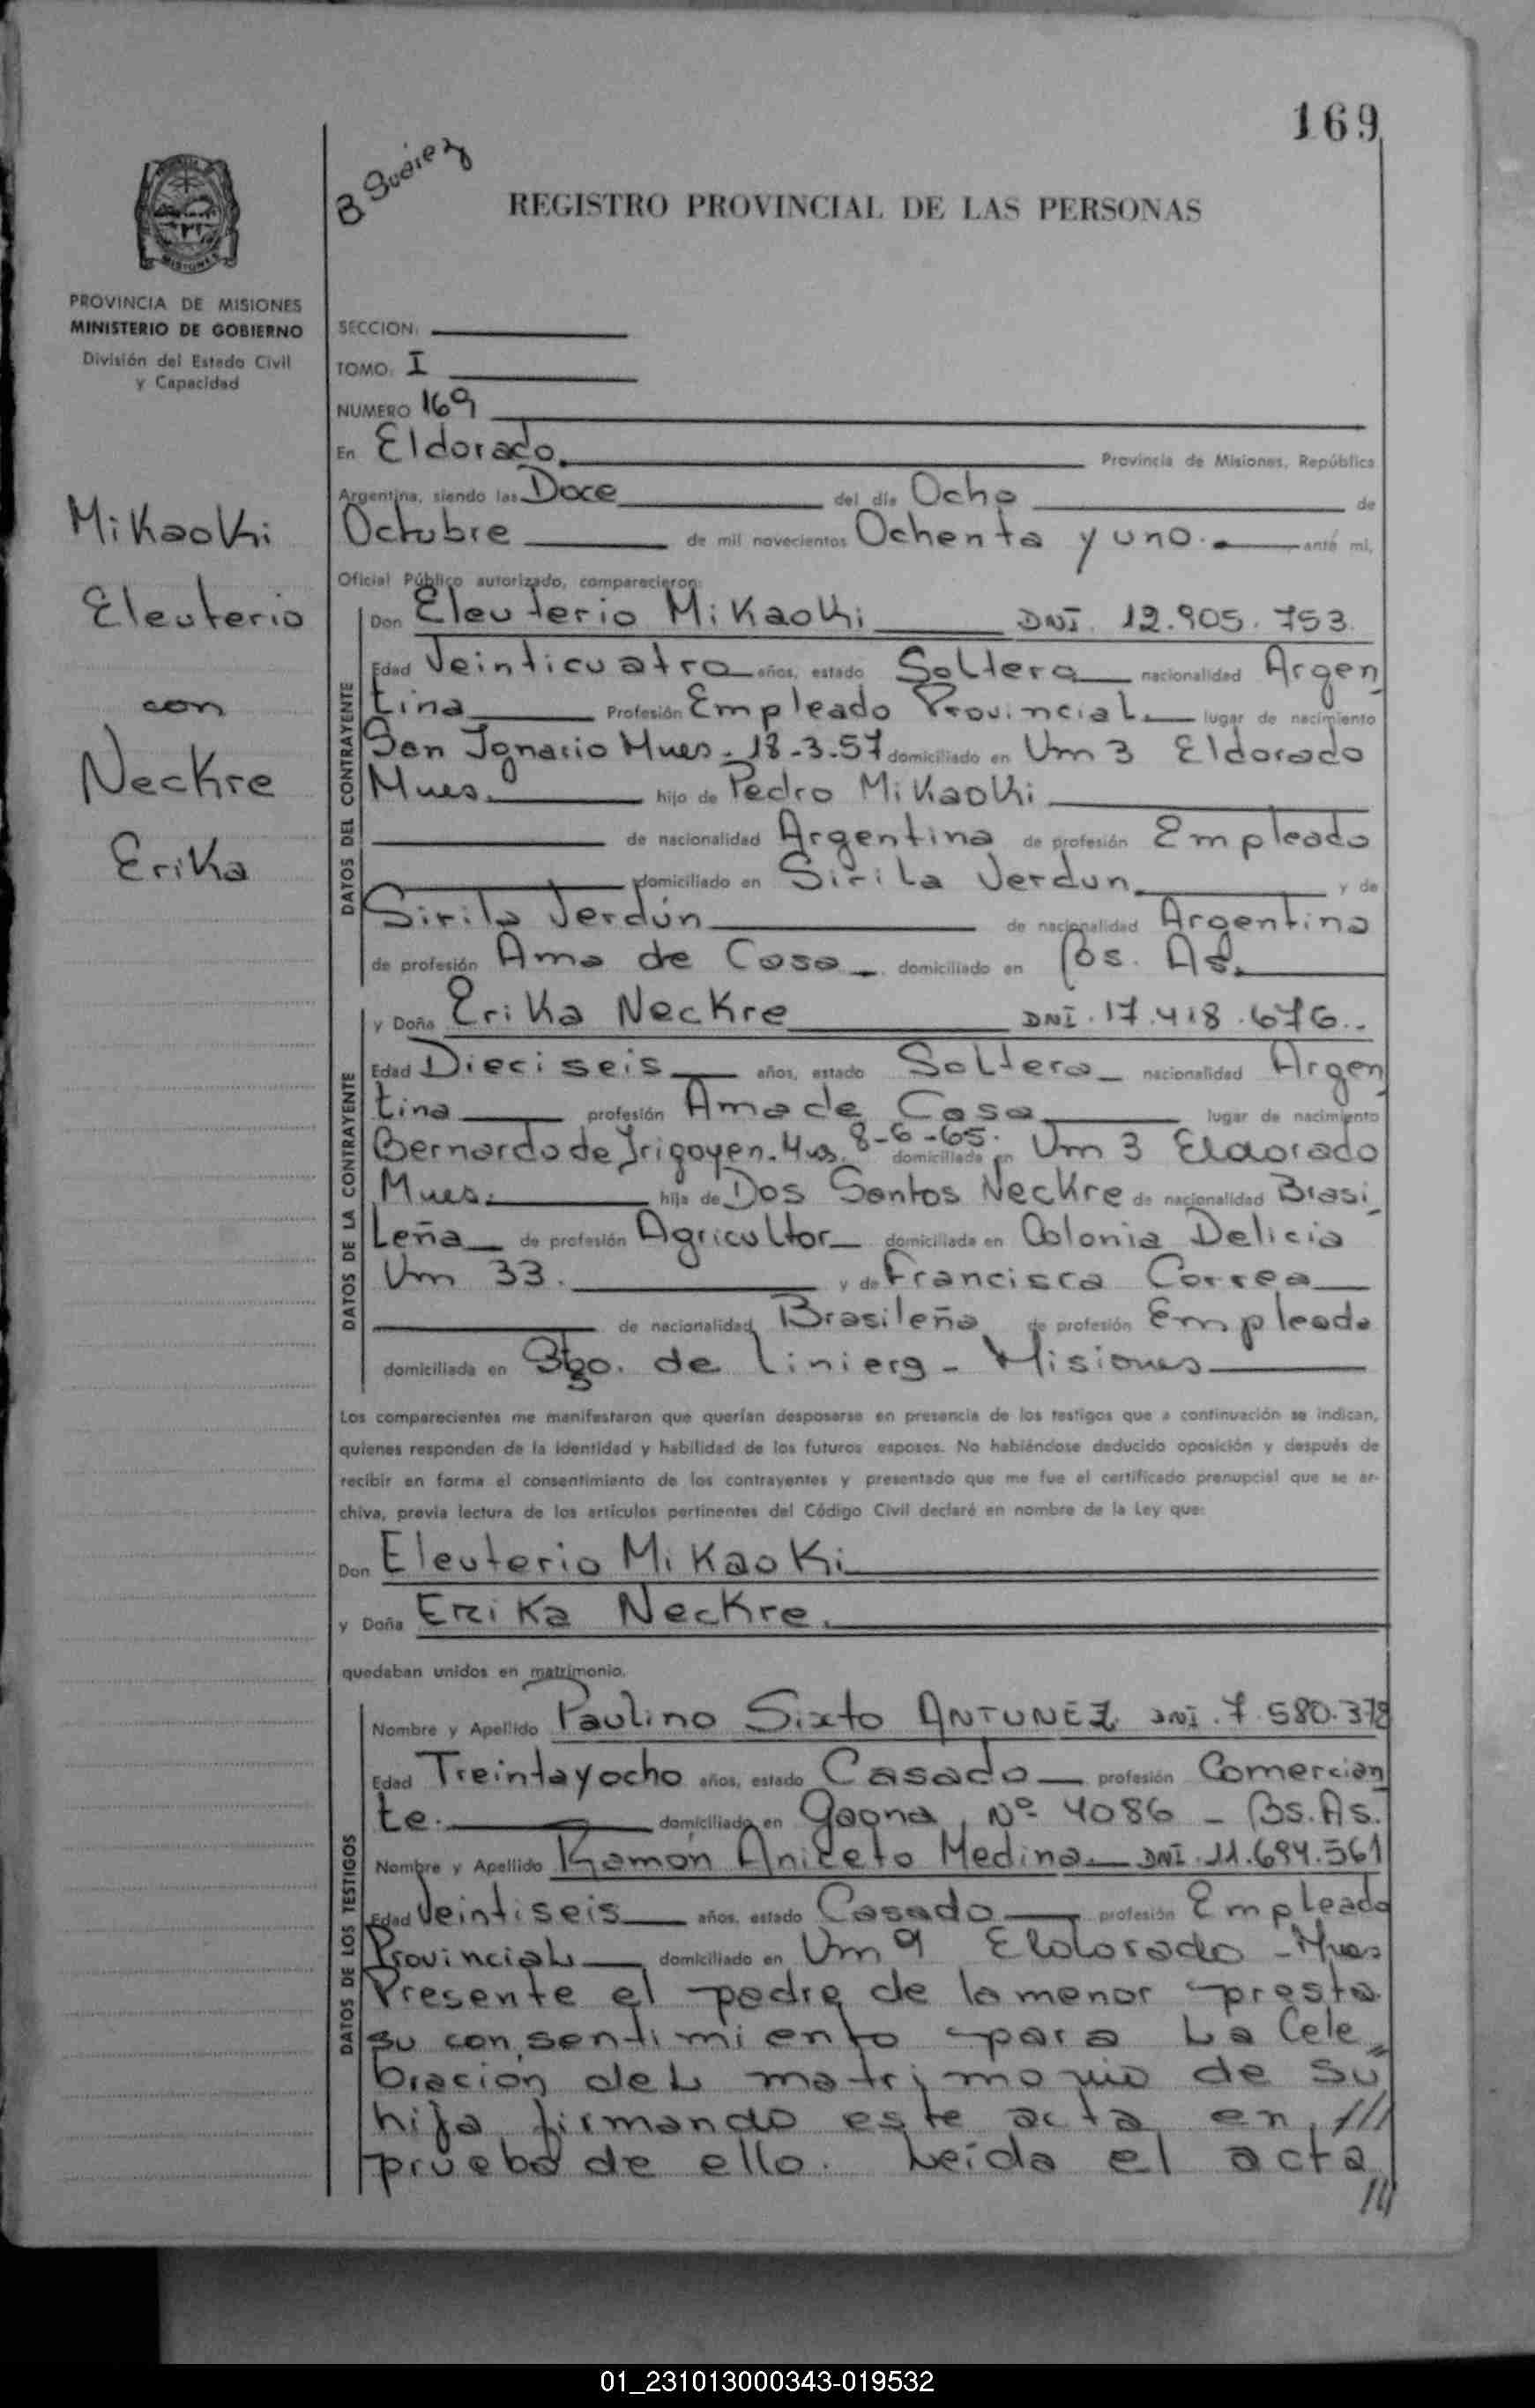 169
B Suárez
REGISTRO PROVINCIAL DE LAS PERSONAS
MISIONES
PROVINCIA DE MISIONES
MINISTERIO DE GOBIERNO
División del Estado Civil
y Capacidad
Mikaoki
Eleuterio
con
Neckre
Erika
SECCION:
TOMO: I
NUMERO 169
En Eldorado. Provincia de Misiones, República
Argentina, siendo las Doce del día Ocho de
Octubre de mil novecientos Ochenta y uno. ante mi,
Oficial Público autorizado, comparecieron:
DATOS DEL CONTRAYENTE
Don Eleuterio Mikaoki DNI. 12.905.753
Edad Veinticuatro años, estado Soltero nacionalidad Argen
tina Profesión Empleado Provincial lugar de nacimiento
San Ignacio Mnes. 18-3-57 domiciliado en Km 3 Eldorado
Mnes. hijo de Pedro Mikaoki
de nacionalidad Argentina de profesión Empleado
domiciliado en Sirila Verdun y de
Sirila Verdún de nacionalidad Argentina
de profesión Ama de Casa domiciliado en Bs. As.
DATOS DE LA CONTRAYENTE
y Doña Erika Neckre DNI. 17.418.676.
Edad Dieciseis años, estado Soltera nacionalidad Argen
tina profesión Ama de Casa lugar de nacimiento
Bernardo de Irigoyen. Mns. 8-6-65. domiciliada en Km 3 Eldorado
Mnes. hija de Dos Santos Neckre de nacionalidad Brasi
Leña de profesión Agricultor domiciliada en Colonia Delicia
Km 33. y de Francisca Correa
de nacionalidad Brasileña de profesión Empleada
domiciliada en Stgo. de Liniers - Misiones
Los comparecientes me manifestaron que querían desposarse en presencia de los testigos que a continuación se indican,
quienes responden de la identidad y habilidad de los futuros esposos. No habiéndose deducido oposición y después de
recibir en forma el consentimiento de los contrayentes y presentado que me fue el certificado prenupcial que se ar-
chiva, previa lectura de los artículos pertinentes del Código Civil declaré en nombre de la Ley que:
Don Eleuterio Mikaoki
y Doña Erika Neckre.
quedaban unidos en matrimonio.
DATOS DE LOS TESTIGOS
Nombre y Apellido Paulino Sixto ANTUNEZ DNI. 7.580.378
Edad Treintayocho años, estado Casado profesión Comercian
te. domiciliado en Gaona Nº 4086 - Bs. As.
Nombre y Apellido Ramon Aniceto Medina DNI. 11.694.561
Edad Veintiseis años, estado Casado profesión Empleado
Provincial domiciliado en Km 9 Eldorado - Mnes
Presente el padre de la menor presta
su consentimiento para La Cele
bración del matrimonio de su
hija firmando este acta en ///
prueba de ello. Leída el acta
///
01_231013000343-019532